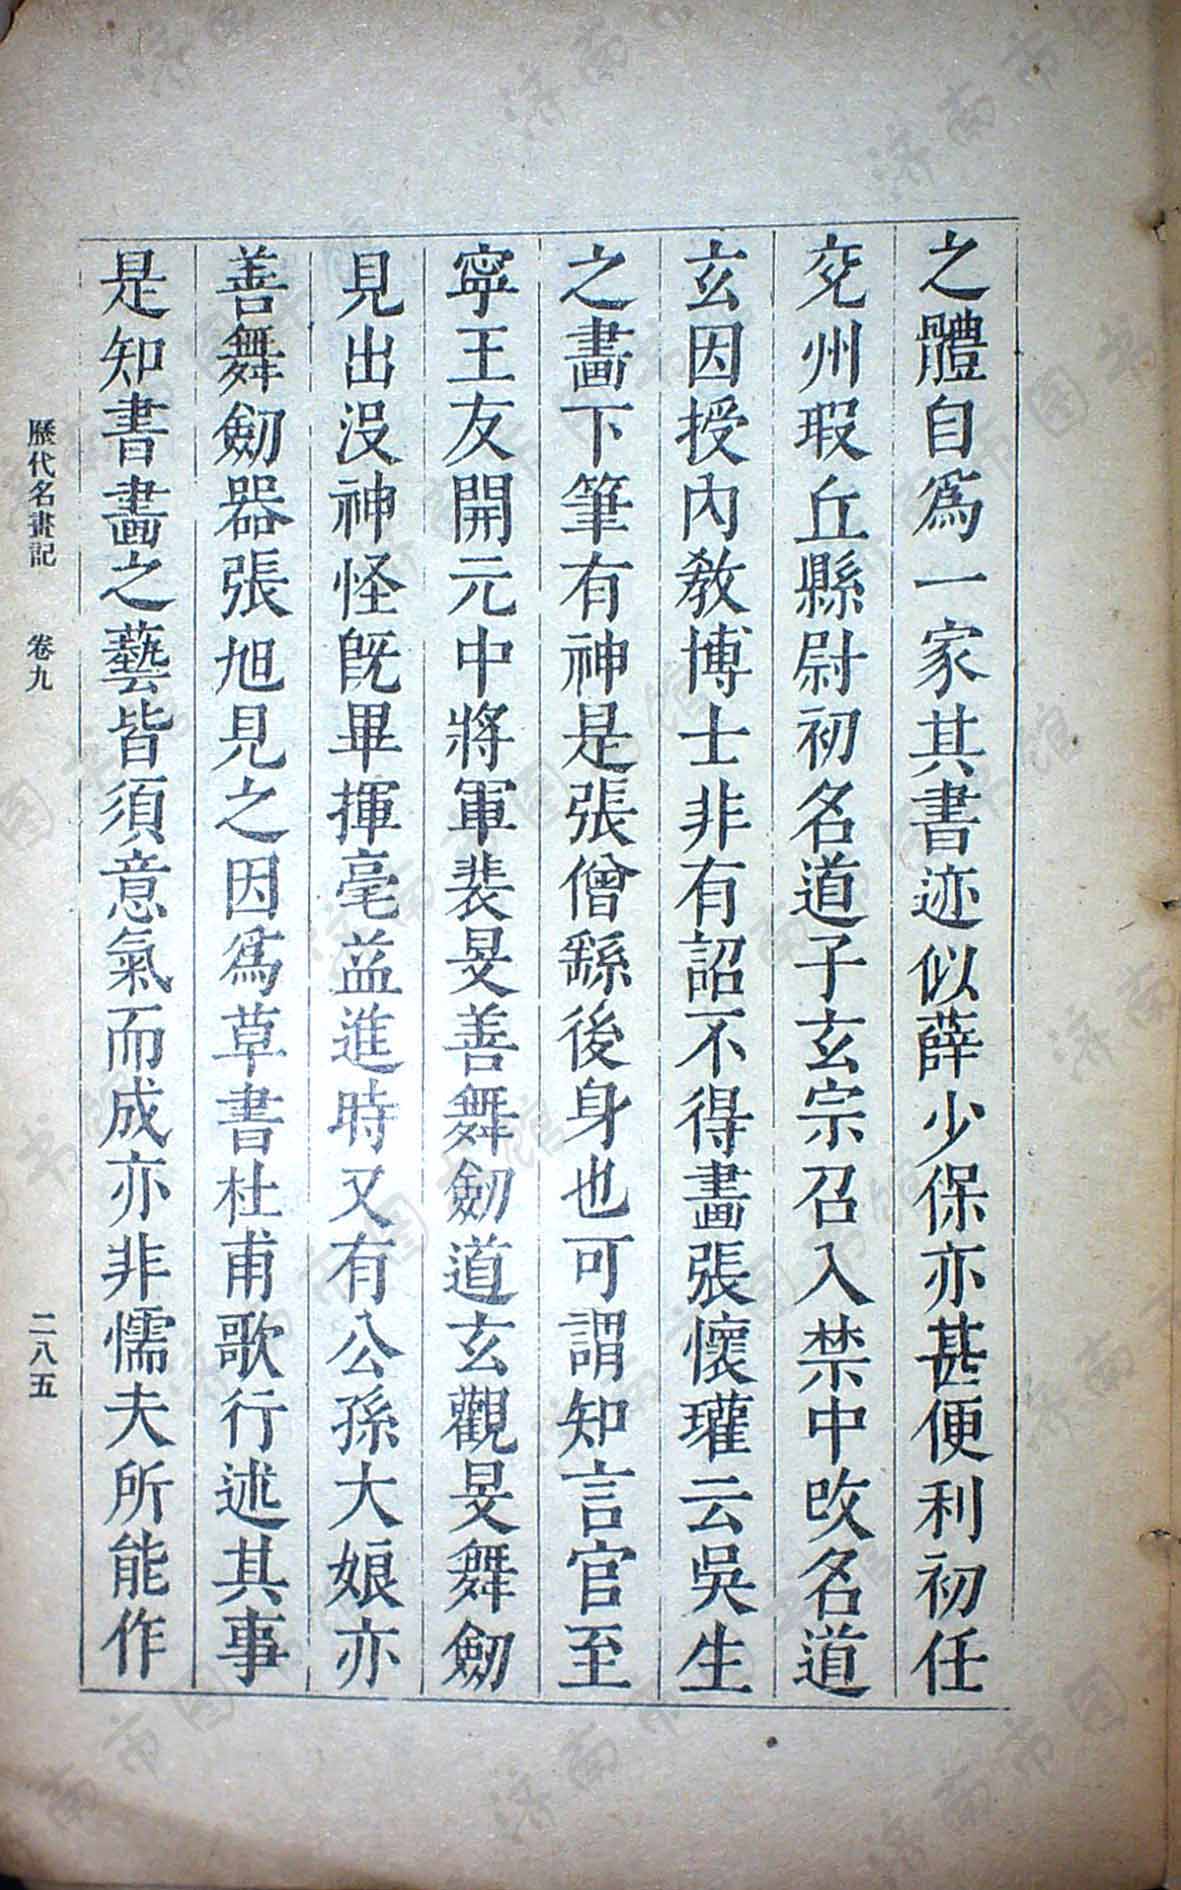 之體自爲一家其書迹似薛少保亦甚便利初任
兖州瑕丘縣尉初名道子玄宗召入禁中改名道
玄因授內教博士非有詔不得畫張懷瓘云吳生
之畫下筆有神是張僧繇後身也可謂知言官至
寧王友開元中將軍裴旻善舞劒道玄觀旻舞劒
見出没神怪旣畢揮毫益進時又有公孫大娘亦
善舞劒器張旭見之因爲草書杜甫歌行述其事
是知書畫之藝皆須意氣而成亦非懦夫所能作
歷代名畫記 卷九 二八五
济南市图书馆